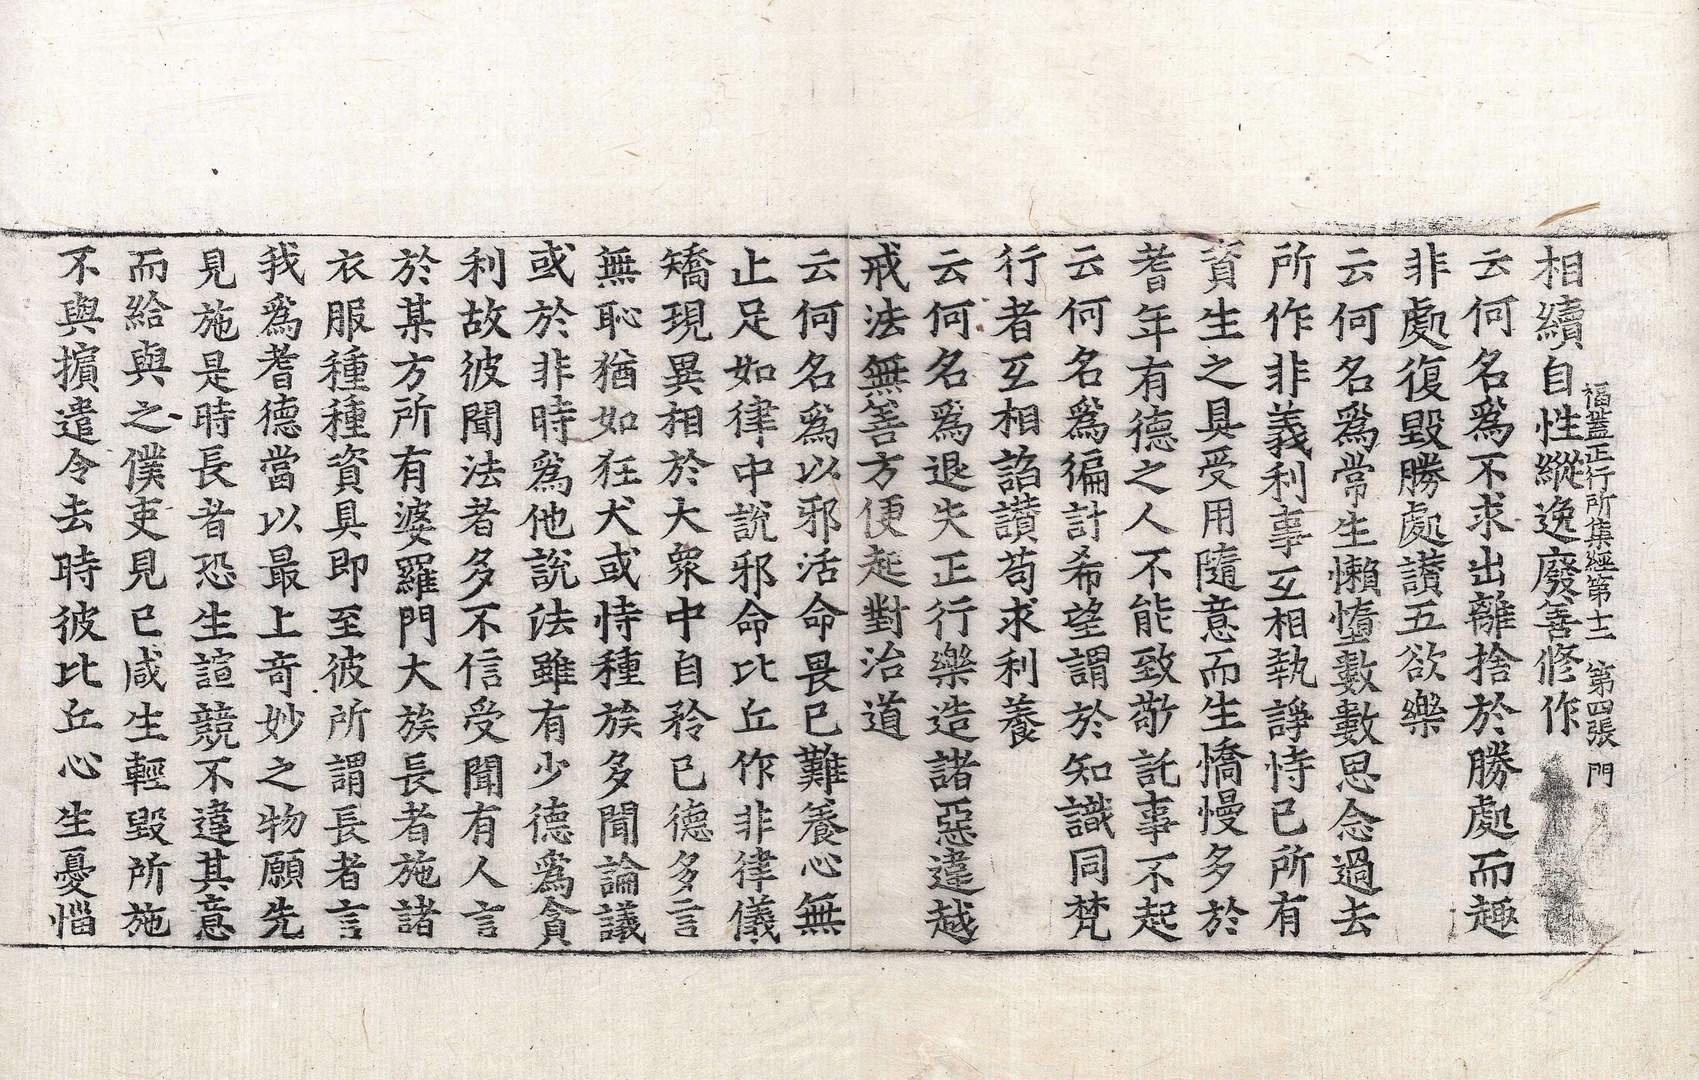 福蓋正行所集經第十二　第四張　門
相續自性縱逸廢善修作
云何名爲不求出離捨於勝處而趣
非處復毀勝處讃五欲樂
云何名爲常生懶墮數數思念過去
所作非義利事互相執諍恃已所有
資生之具受用隨意而生憍慢多於
耆年有德之人不能致敬託事不起
云何名爲徧計希望謂於知識同梵
行者互相諂讃苟求利養
云何名爲退失正行樂造諸惡違越
戒法無善方便起對治道
云何名爲以邪活命畏已難養心無
止足如律中說邪命比丘作非律儀
矯現異相於大衆中自矜已德多言
無恥猶如狂犬或恃種族多聞論議
或於非時爲他說法雖有少德爲貪
利故彼聞法者多不信受聞有人言
於某方所有婆羅門大族長者施諸
衣服種種資具即至彼所謂長者言
我爲耆德當以最上奇妙之物願先
見施是時長者恐生諠競不違其意
而給與之僕吏見已咸生輕毀所施
不與擯遣令去時彼比丘心生憂惱